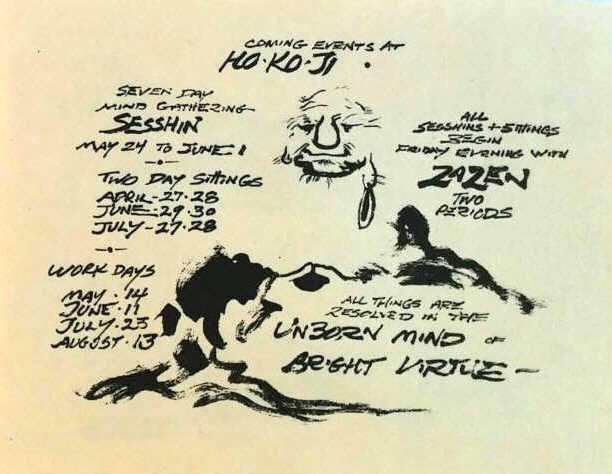 COMING EVENTS AT
HO·KO·JI ·
SEVEN DAY
MIND GATHERING
SESSHIN
MAY 24 TO JUNE 1
TWO DAY SITTINGS
APRIL-27-28
JUNE-29-30
JULY-27-28
WORK DAYS
MAY · 14
JUNE · 11
JULY · 23
AUGUST · 13
ALL
SESSHINS + SITTINGS
BEGIN
FRIDAY EVENING WITH
ZAZEN
TWO
PERIODS
ALL THINGS ARE
RESOLVED IN THE
UNBORN MIND OF
BRIGHT VIRTUE —